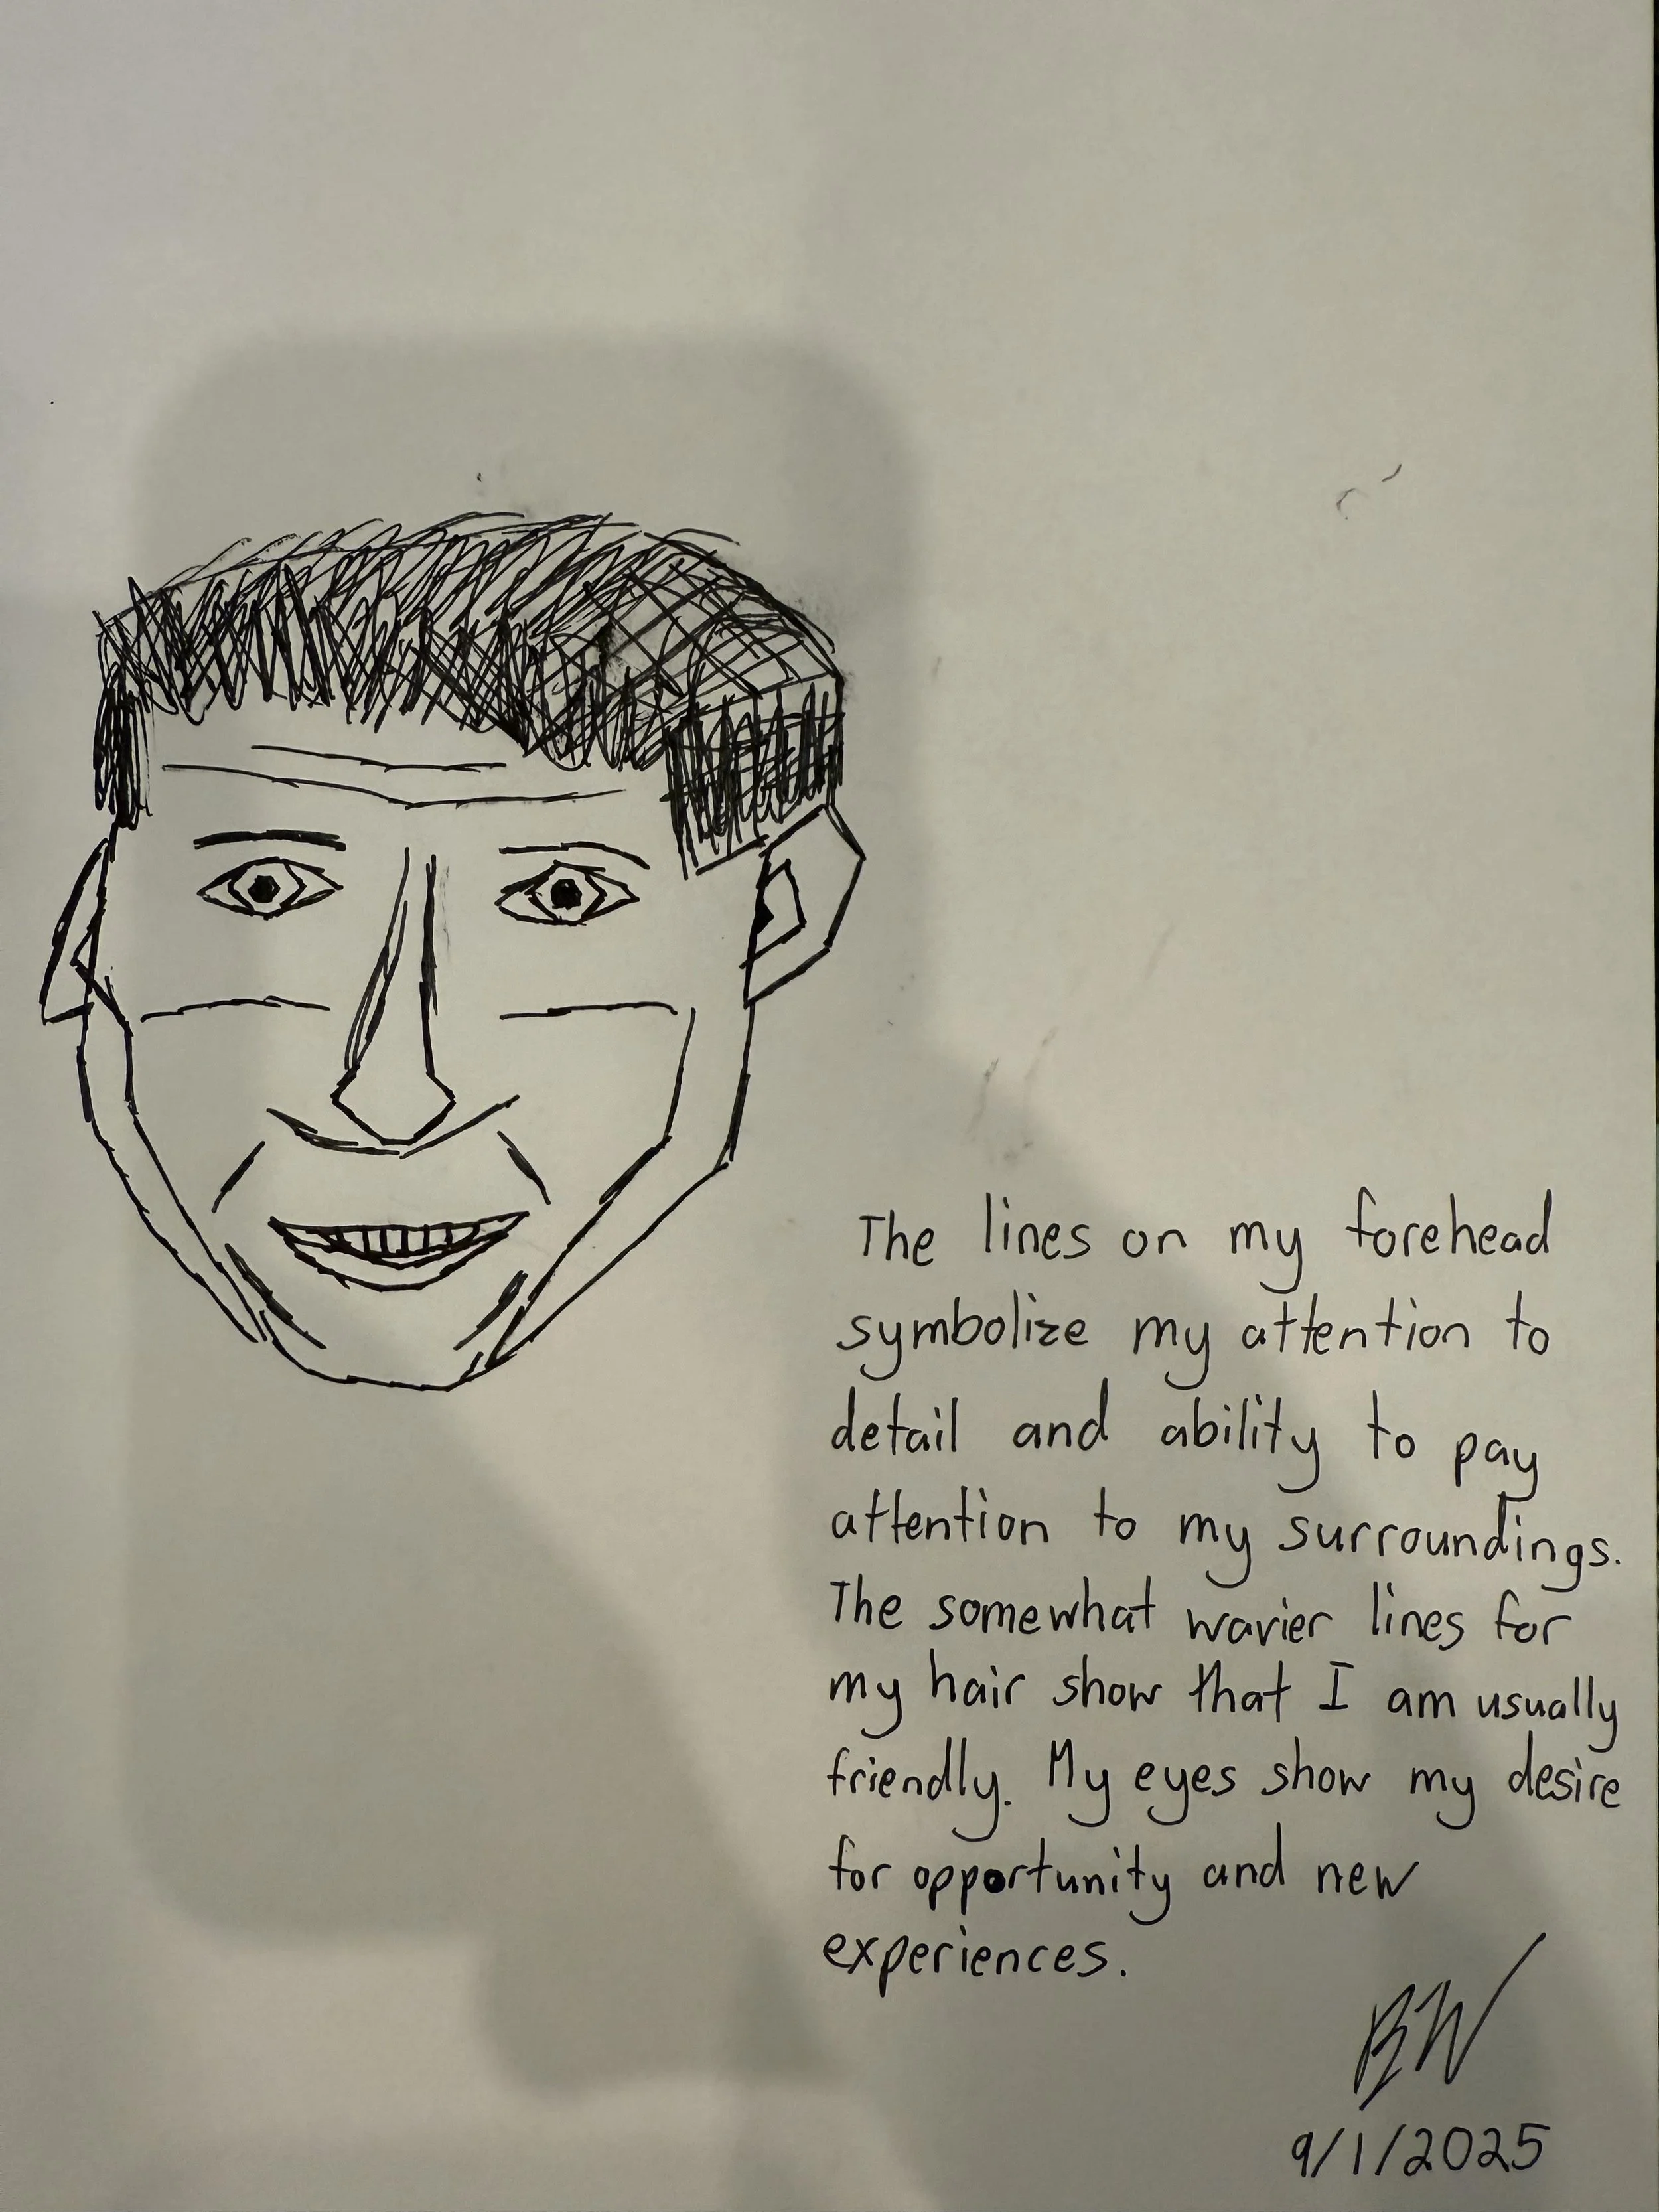 The lines on my forehead
symbolize my attention to
detail and ability to pay
attention to my surroundings.
The somewhat wavier lines for
my hair show that I am usually
friendly. My eyes show my desire
for opportunity and new
experiences.
BW
9/1/2025